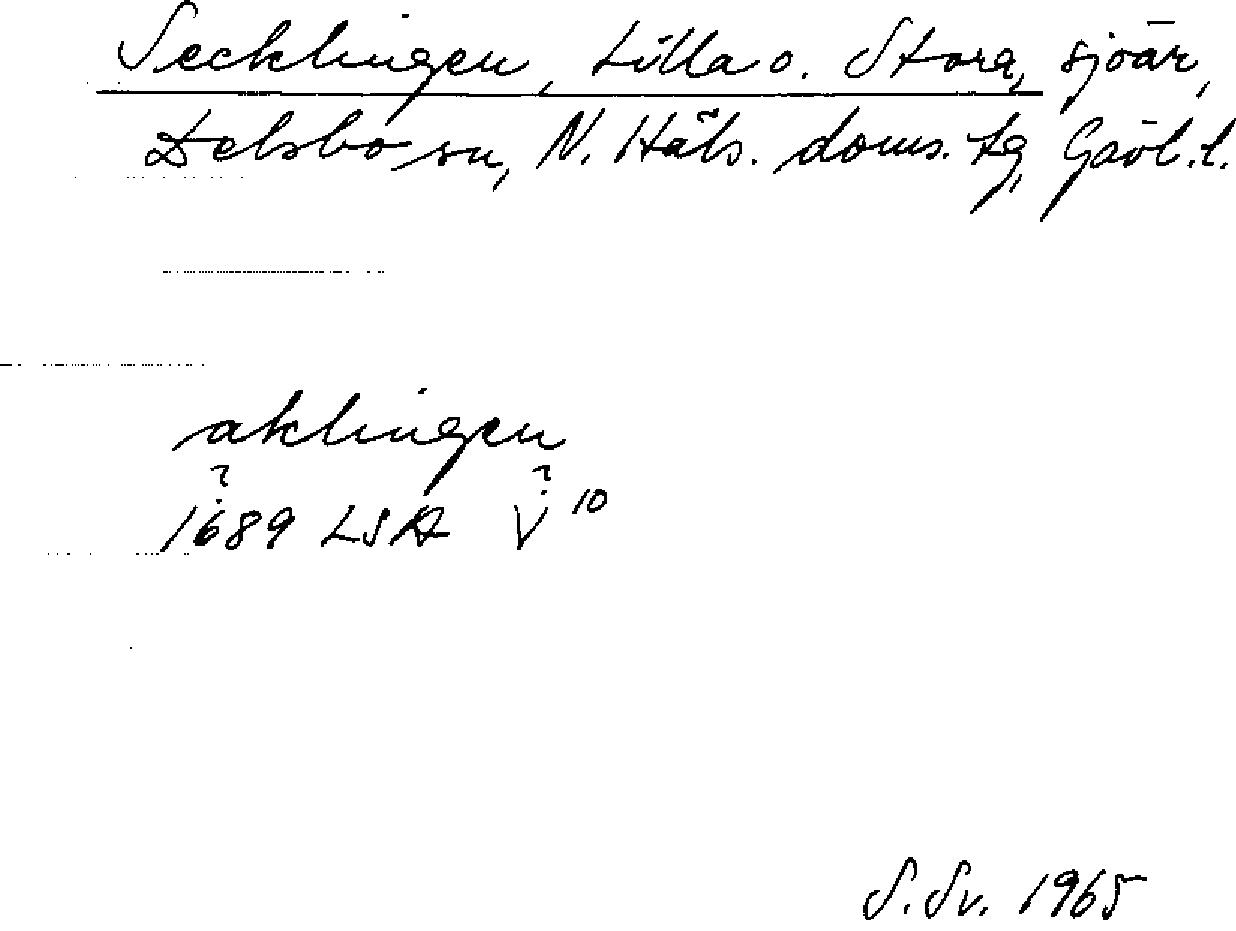 Secklingen, Lilla o. Stora, sjöar,
Delsbo sn, N. Häls. doms. tg, Gävl. l.
aklingen
? ?
1689 LSA V 10
S. Sv. 1965